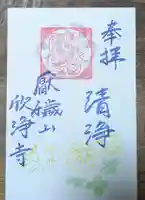 奉拝
清浄
厭穢山
欣浄寺